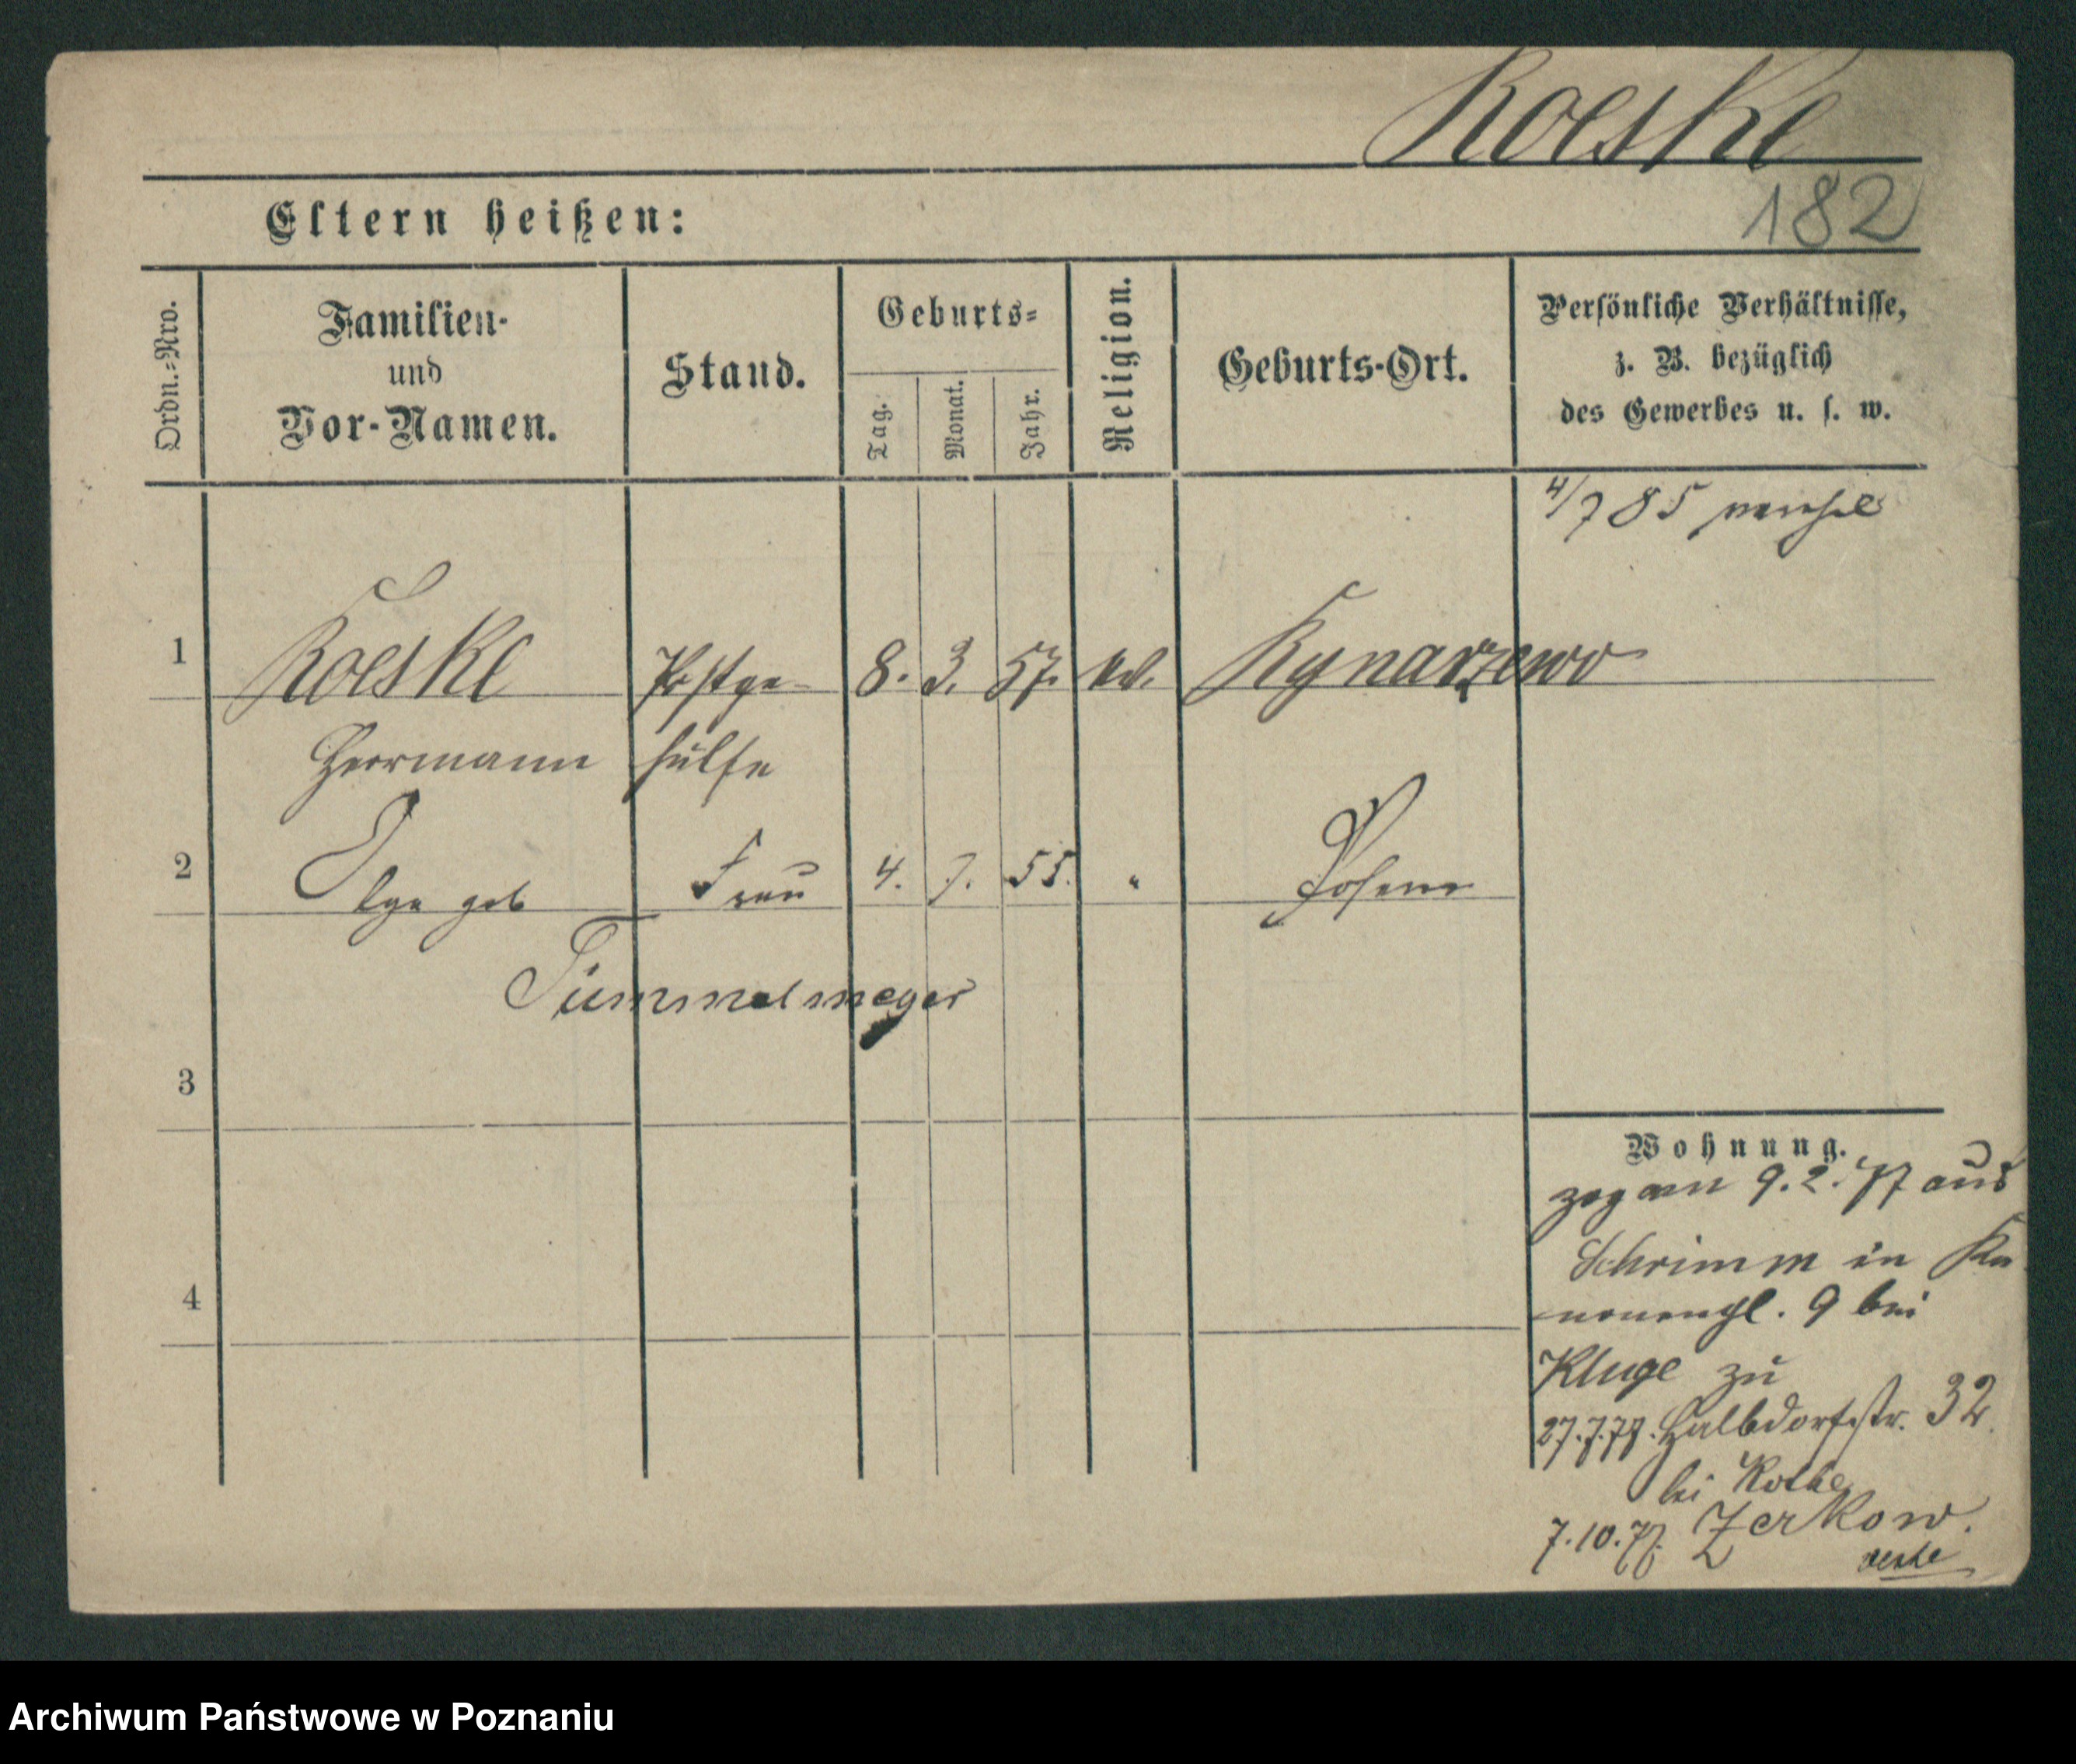 Roeske
182
Eltern heißen:
Ordn.-Nro.
Familien-
und
Vor-Namen.
Stand.
Geburts-
Tag.
Monat.
Jahr.
Religion.
Geburts-Ort.
Persönliche Verhältnisse,
z. B. bezüglich
des Gewerbes u. s. w.
4/7 85
1 Roeske Postge- 8. 3. 57. Kynarzewo
Herrmann hülfe
2 Olga geb Frau 4. 7. 55. " Posen
Tümmelmeyer
3
4
Wohnung.
zog am 9.2.77 aus
Schrimm in Ka
nonengl. 9 bei
Kluge zu
27.7.77. Halbdorfstr. 32.
bei Kothe
7.10.77. Zerkow.
Archiwum Państwowe w Poznaniu